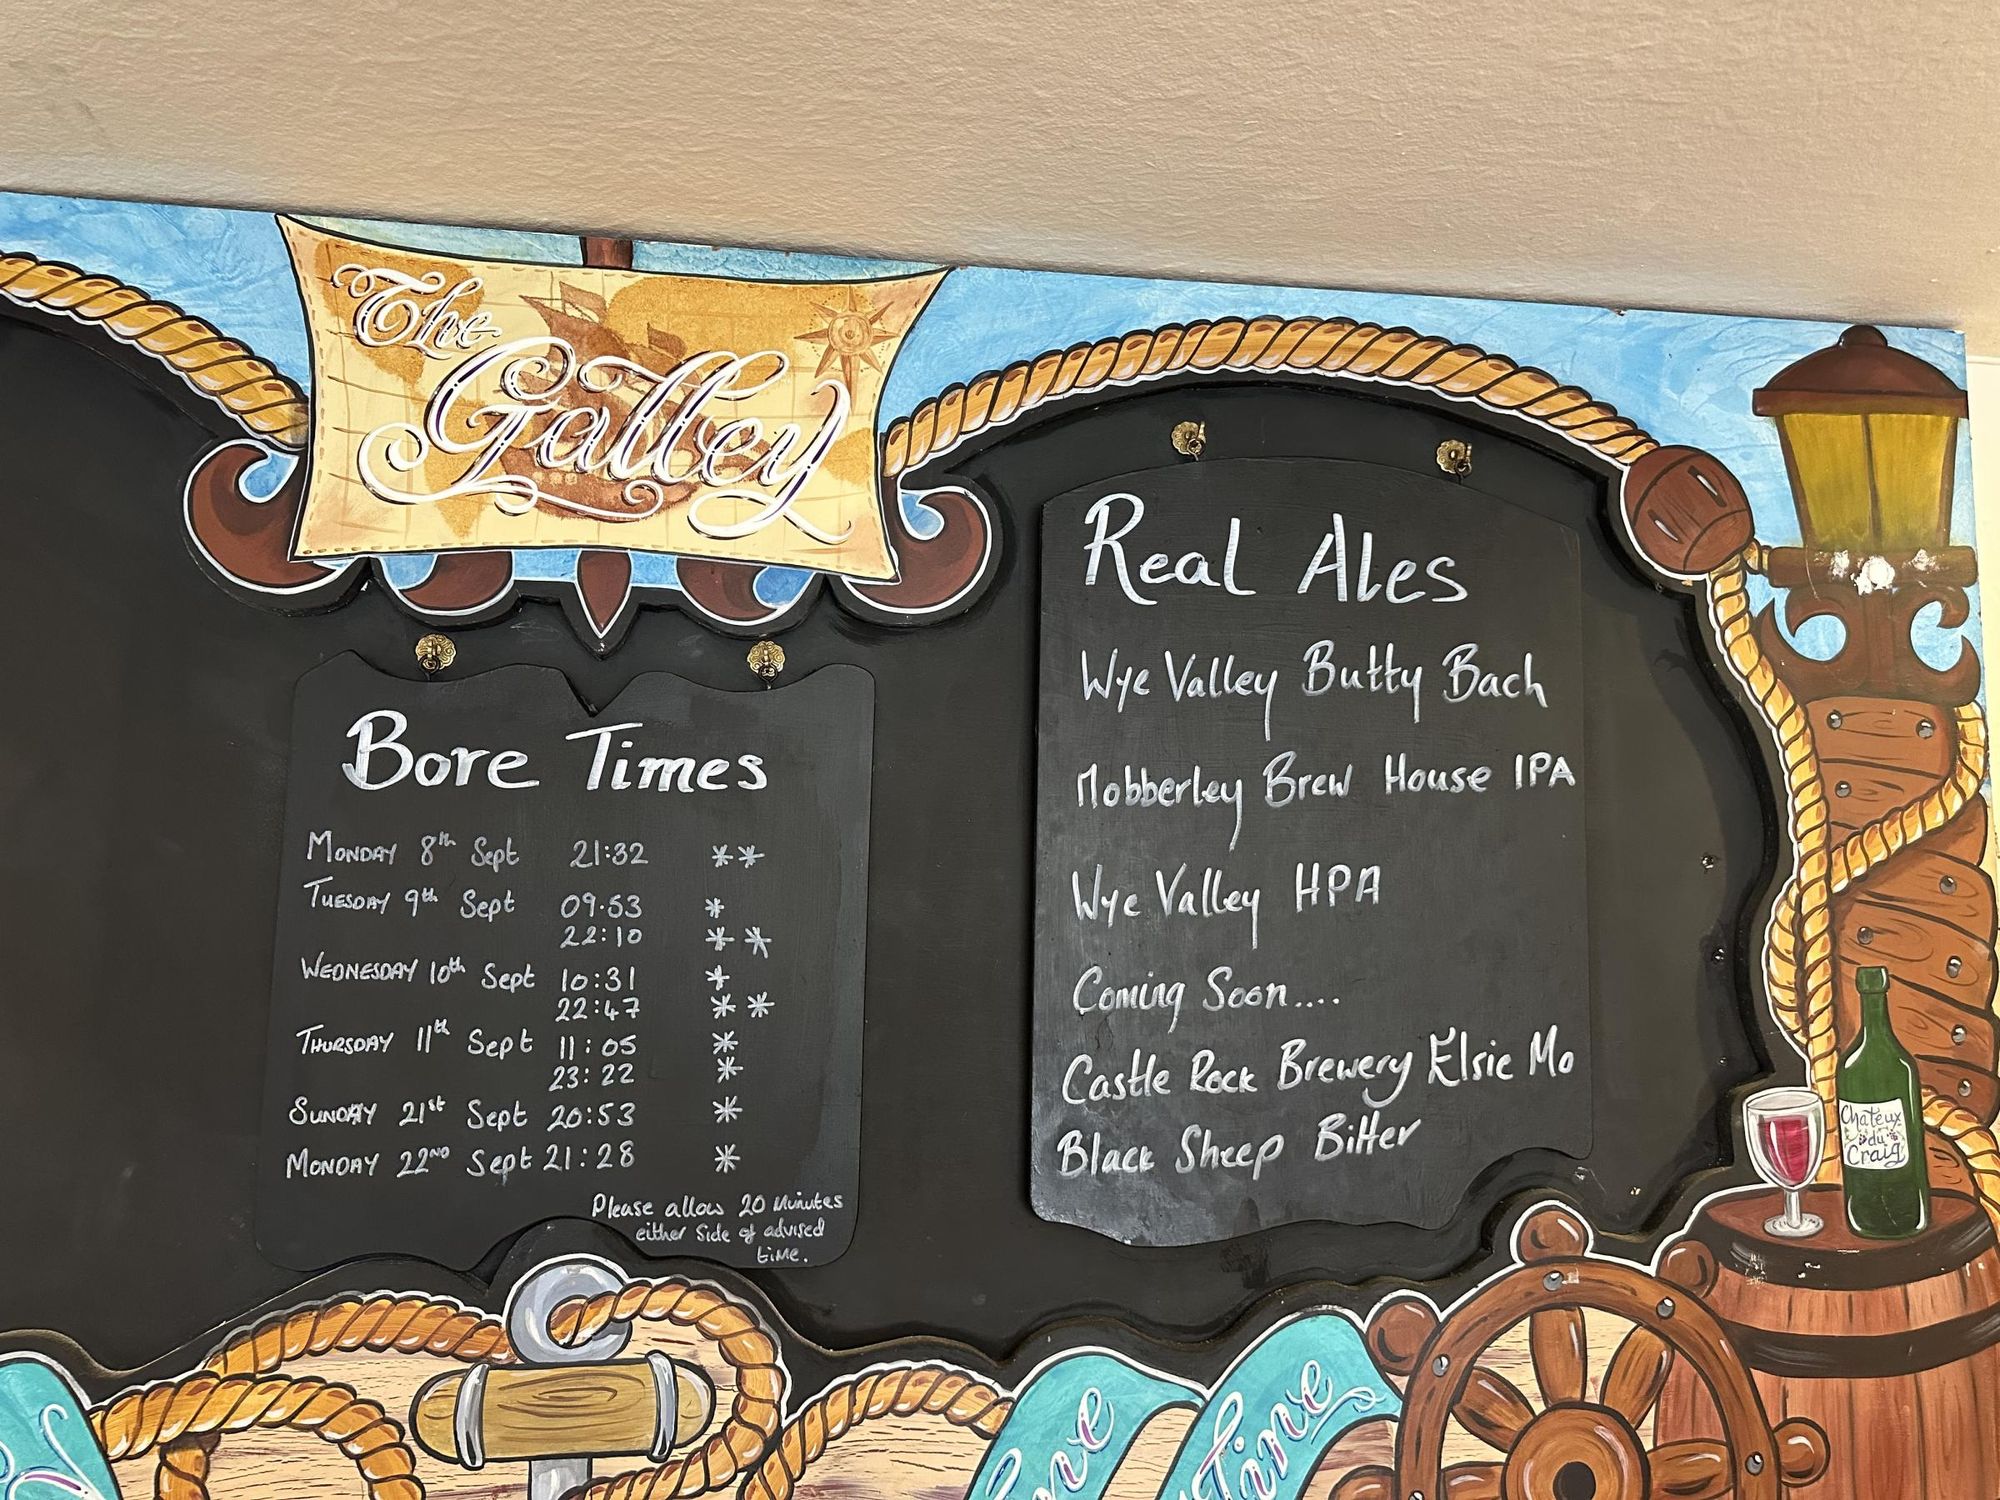 The
Galley
Bore Times
MONDAY 8th Sept 21:32 **
TUESDAY 9th Sept 09.53 *
22:10 **
WEDNESDAY 10th Sept 10:31 *
22:47 **
THURSDAY 11th Sept 11:05 *
23:22 *
SUNDAY 21st Sept 20:53 *
MONDAY 22ND Sept 21:28 *
Please allow 20 minutes
either side of advised
time.
Real Ales
Wye Valley Butty Bach
Mobberley Brew House IPA
Wye Valley HPA
Coming Soon....
Castle Rock Brewery Elsie Mo
Black Sheep Bitter
Chateux
du
Craig